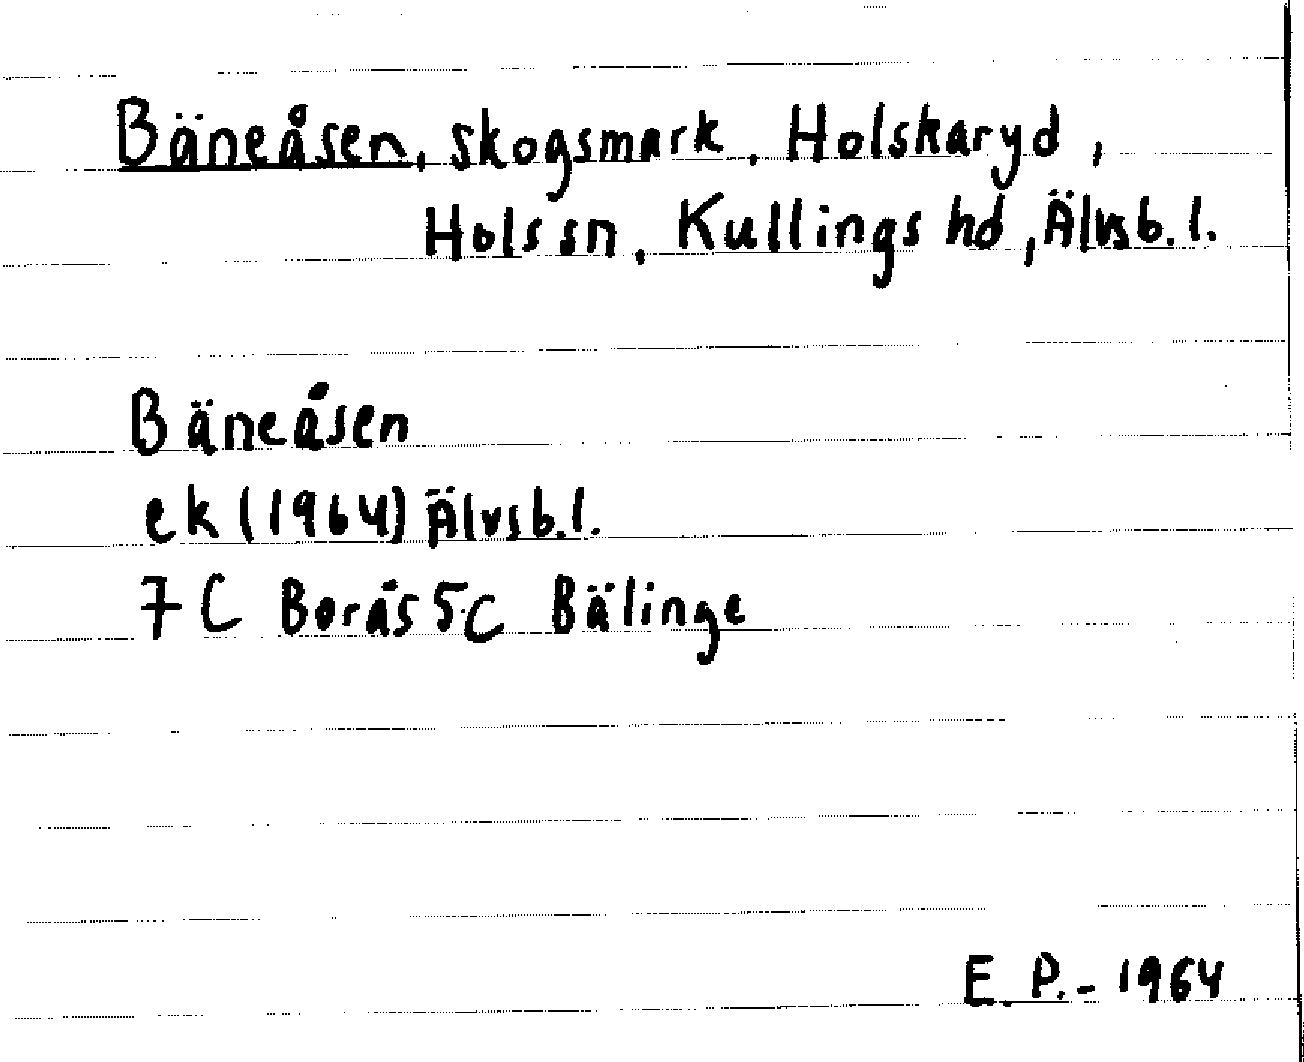 Bäneåsen, skogsmark, Holskaryd,
Hols sn, Kullings hd, Älvsb. l.
Bäneåsen
ek (1964) Älvsb. l.
7 C Borås 5 C Bälinge
E. P. - 1964